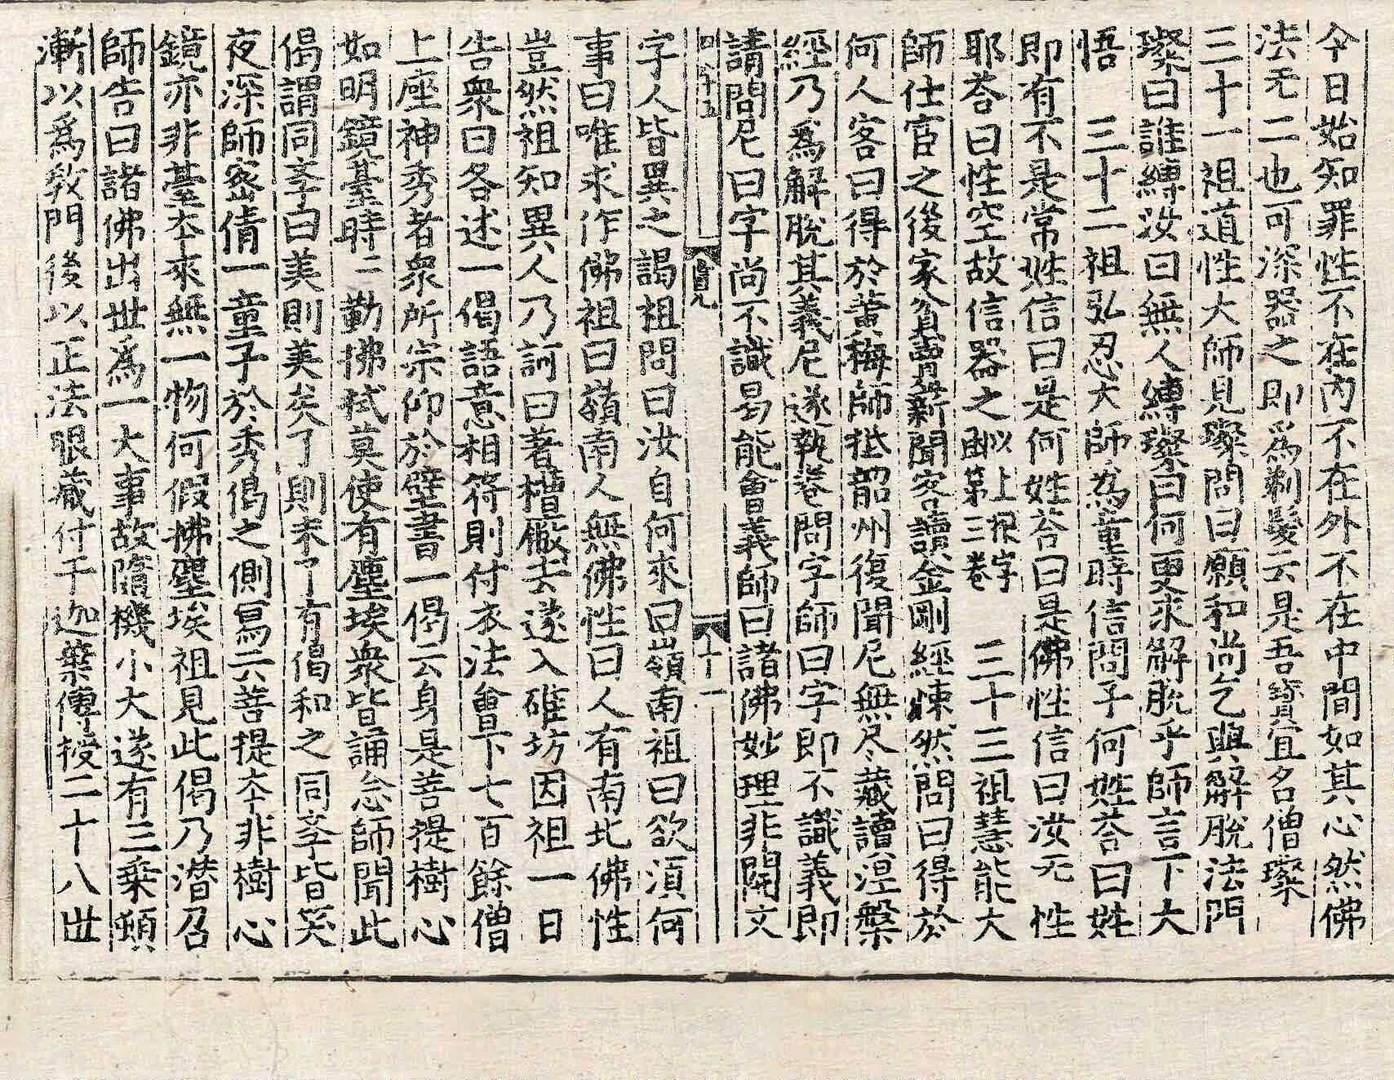 今日始知罪性不在內不在外不在中間如其心然佛
法无二也可深器之即爲剃髮云是吾寶宜名僧璨
三十一祖道性大師見璨問曰願和尚乞與解脫法門
璨曰誰縛汝曰無人縛璨曰何更求解脫乎師言下大
悟　三十二祖弘忍大師爲童時信問子何姓荅曰姓
即有不是常姓信曰是何姓荅曰是佛性信曰汝无性
耶荅曰性空故信器之以上根字函第三卷　三十三祖慧能大
師仕官之後家貧賣薪聞客讀金剛經悚然問曰得於
何人客曰得於黃梅師抵韶州復聞尼無尽藏讀涅槃
經乃爲解脫其義尼遂執卷問字師曰字即不識義即
請問尼曰字尚不識曷能會義師曰諸佛妙理非関文
字人皆異之謁祖問曰汝自何來曰嶺南祖曰欲湏何
事曰唯求作佛祖曰嶺南人無佛性曰人有南北佛性
豈然祖知異人乃訶曰著槽廠去遂入碓坊因祖一日
告衆曰各述一偈語意相符則付衣法會下七百餘僧
上座神秀者衆所宗仰於壁書一偈云身是菩提樹心
如明鏡臺時〻勤拂拭莫使有塵埃衆皆誦念師聞此
偈謂同李曰美則美矣了則未了有偈和之同李皆笑
夜深師密倩一童子於秀偈之側寫云菩提本非樹心
鏡亦非臺本來無一物何假拂塵埃祖見此偈乃潜召
師告曰諸佛出世爲一大事故隨機小大遂有三乘頓
漸以爲敎門後以正法眼藏付于迦葉傳授二十八世